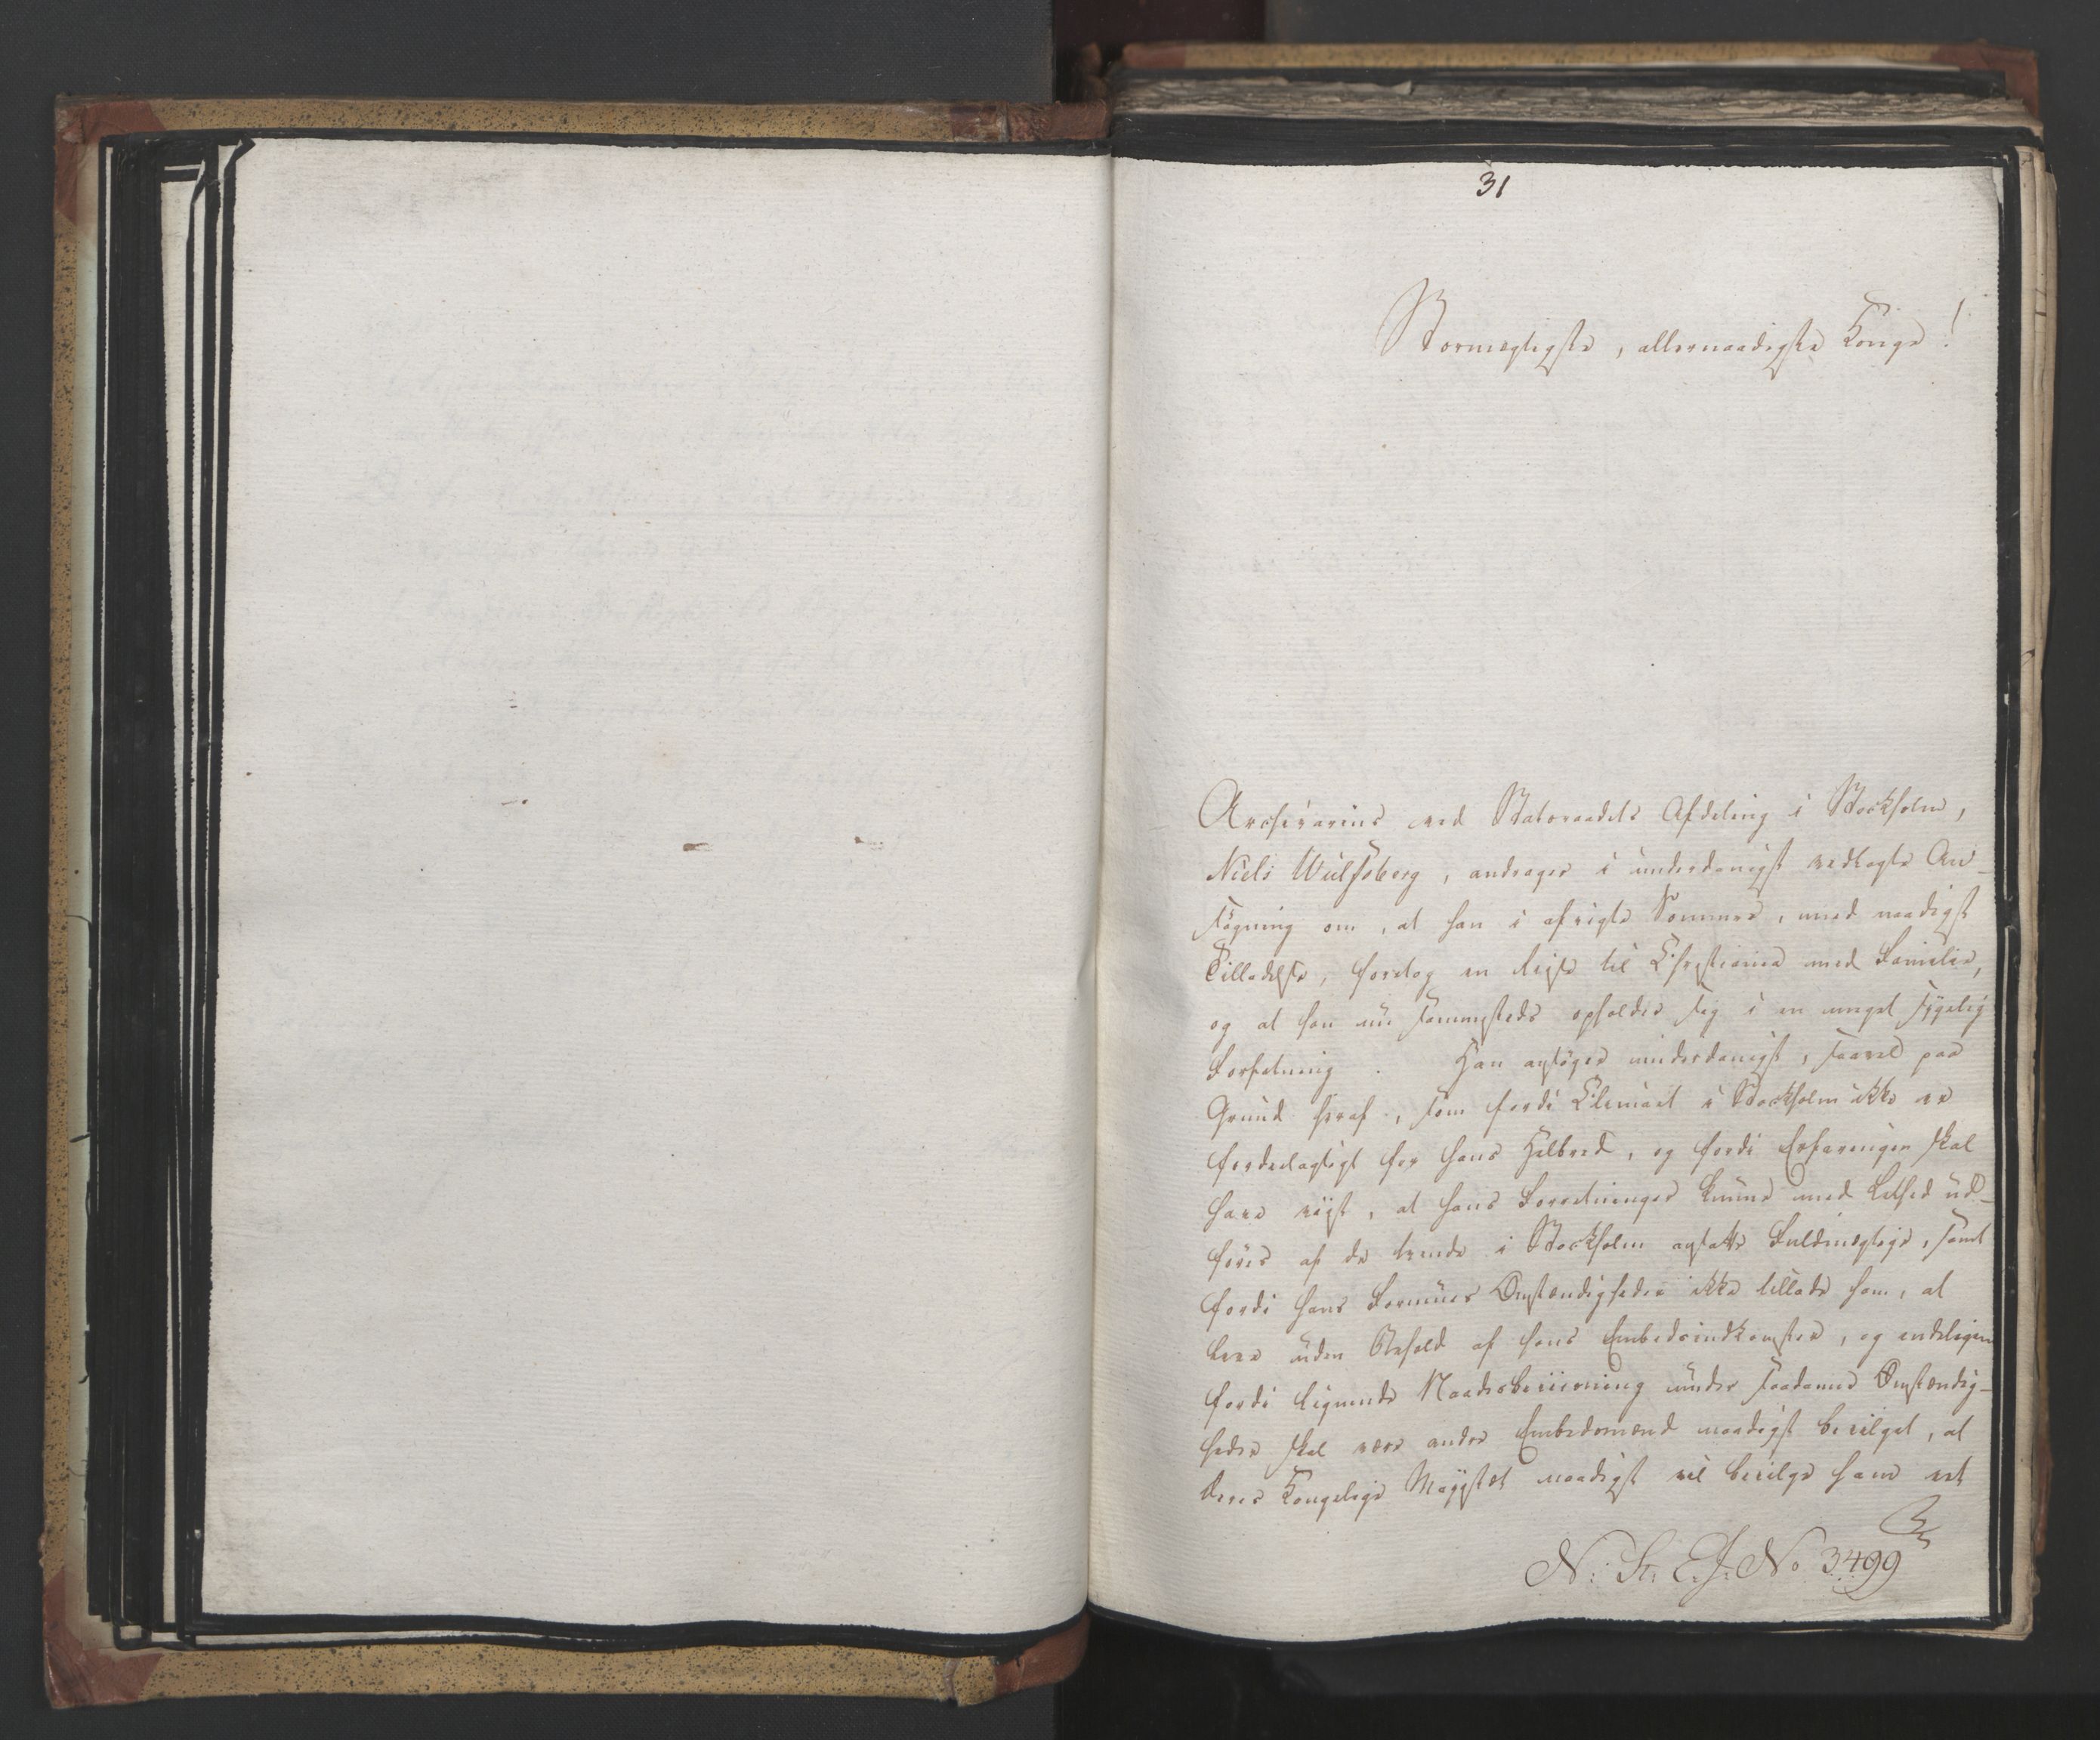 31
Stormægtigste, allernaadigste Konge!
Archivarius ved Statsraadets Afdeling i Stockholm,
Niels Wulfsberg, andrager i underdanigst vedlagte An-
søgning om, at han i afvigte Sommer, med naadigst
Tilladelse, foretog en Reise til Christiania med Familie,
og at han nu sammesteds opholder sig i en meget sygelig
Forfatning. Han ansøger underdanigst, saavel paa
Grund heraf, som fordi Climaet i Stockholm ikke er
fordelagtigt for hans Helbred, og fordi Erfaringen skal
have viist, at hans Forretninger kunne med Lethed ud-
føres af de tvende i Stockholm ansatte Fuldmægtige, samt
fordi hans Formues Omstændigheder ikke tillade ham, at
leve uden Behold af hans Embedsindkomster, og endeligen
fordi lignende Naadesbeviisning under saadanne Omstændig-
heder skal være andre Embedsmænd naadigst bevilget, at
Deres Kongelige Majestæt naadigst vil bevilge ham et
N: St: E. J. No 3499